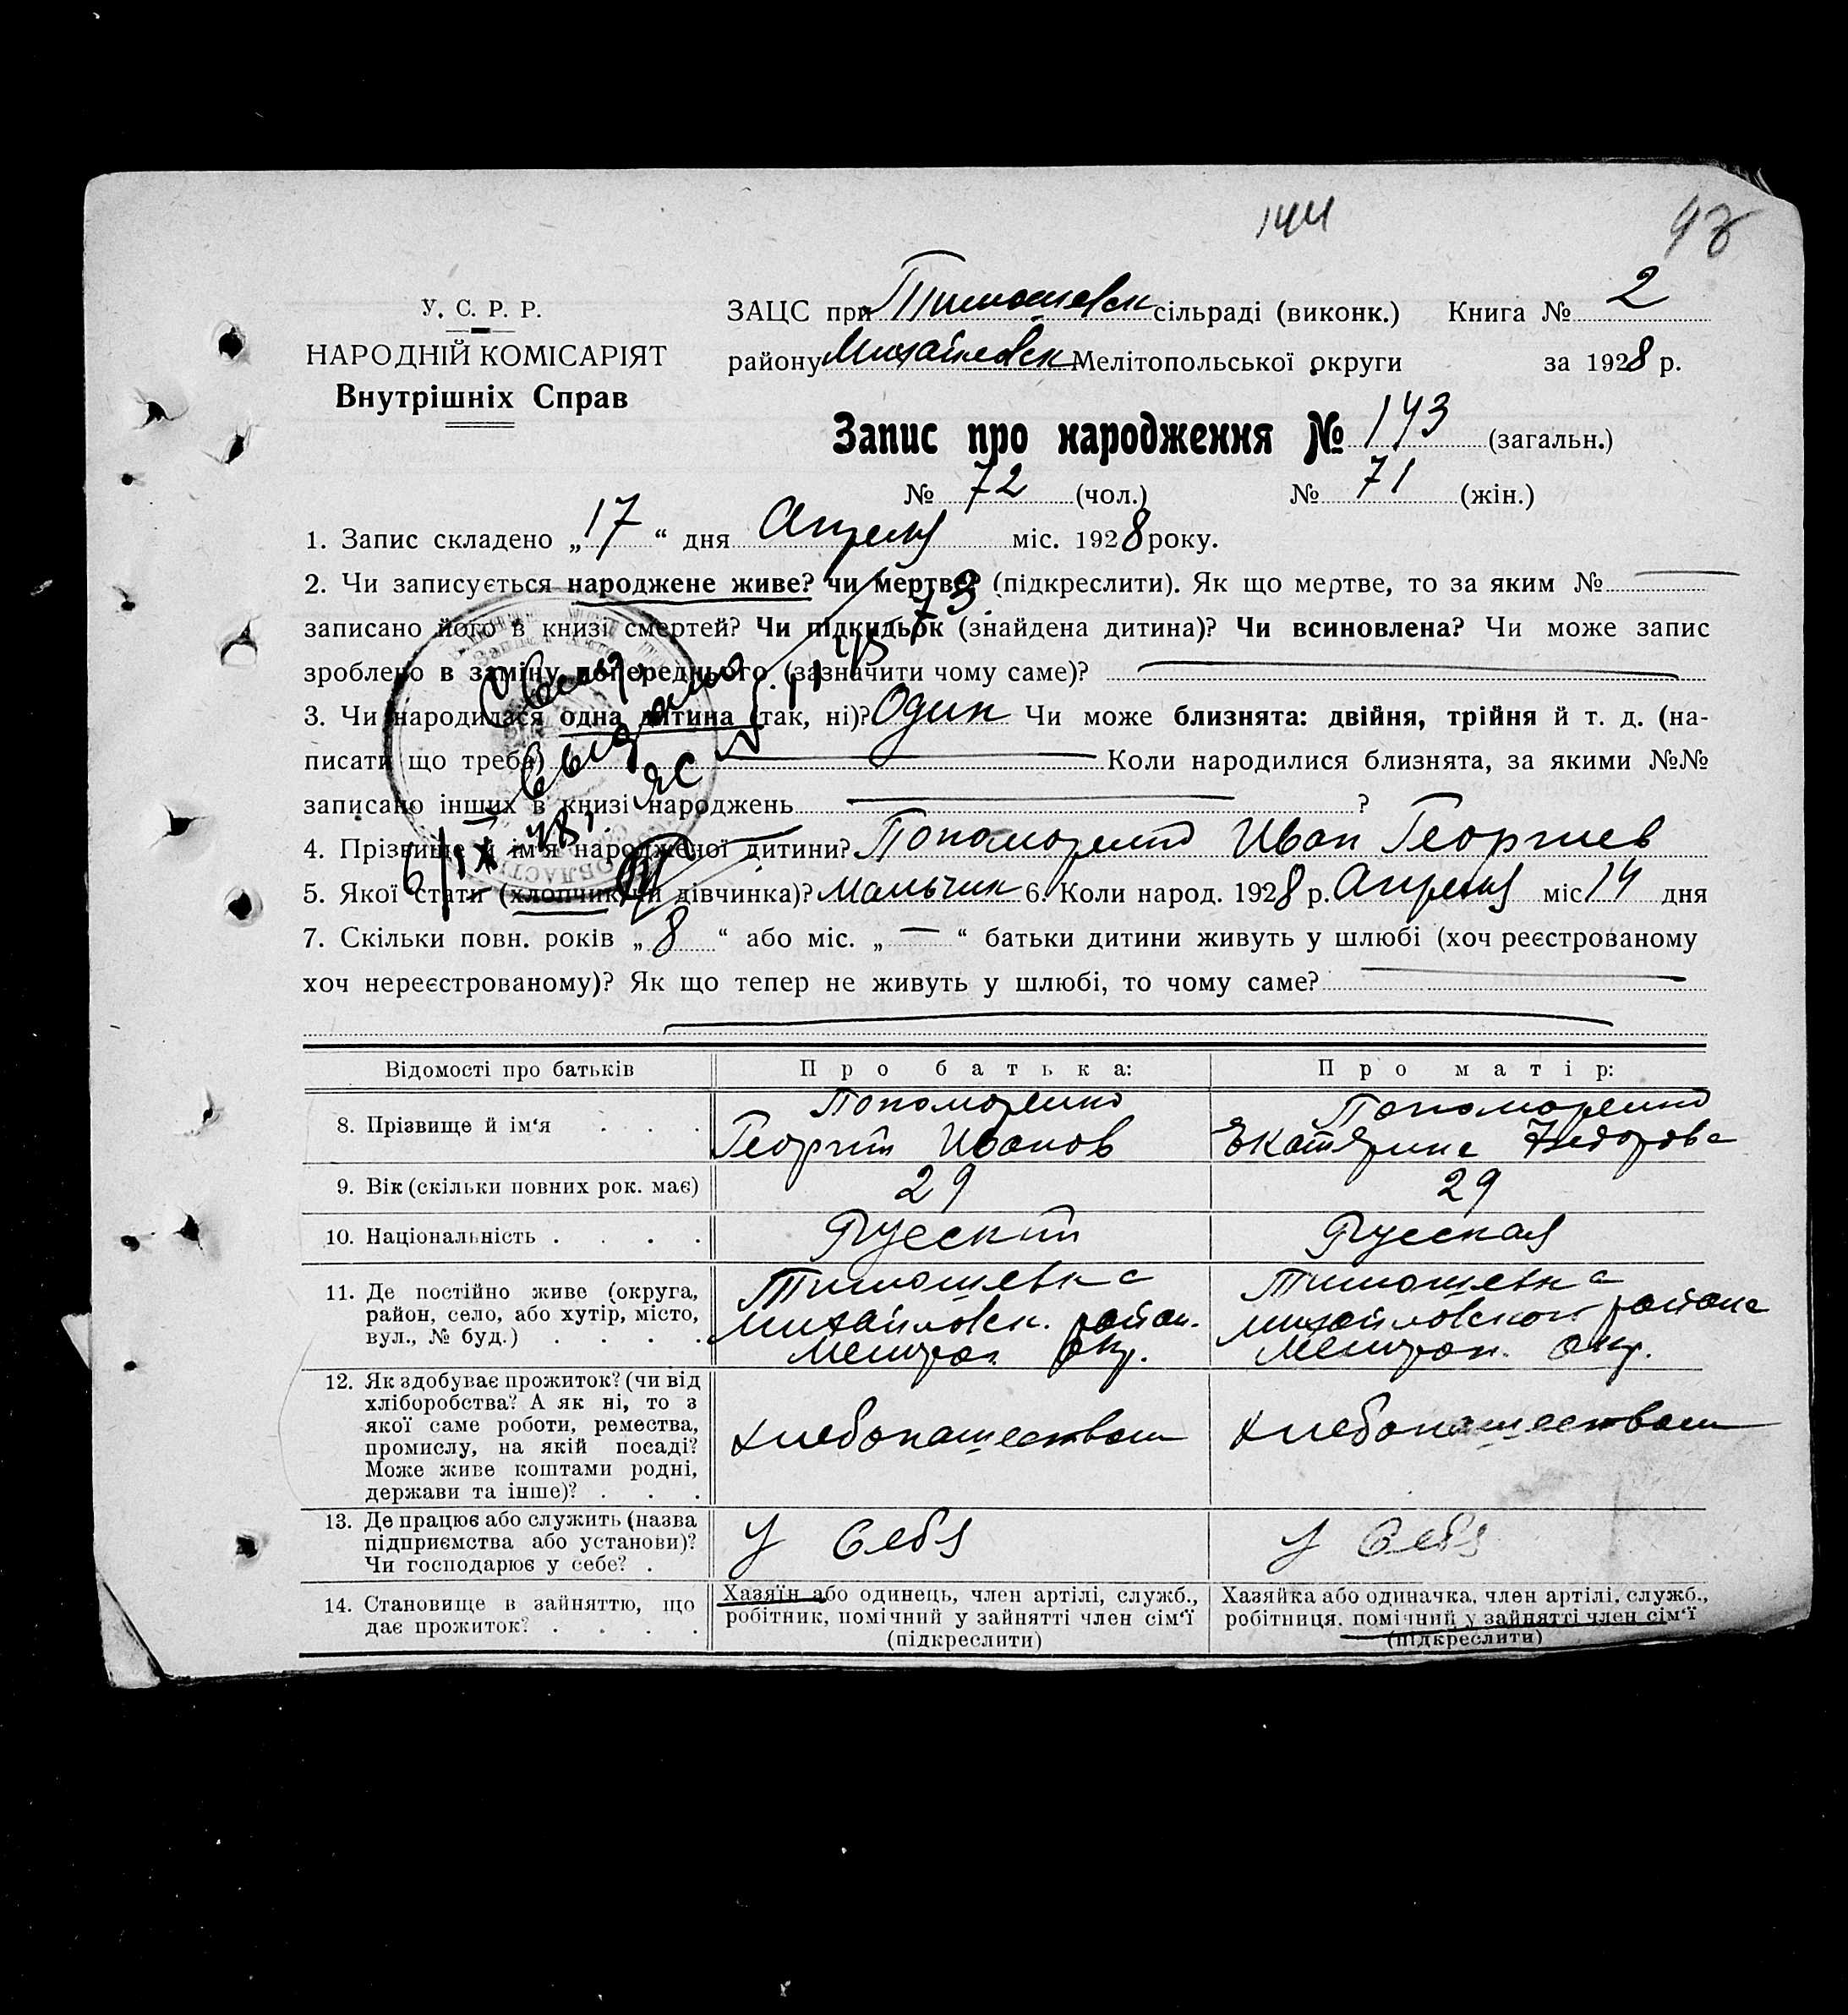 144
98
У. С. Р. Р.
НАРОДНІЙ КОМІСАРІЯТ
Внутрішніх Справ
ЗАЦС при Тимошевск сільраді (виконк.) Книга № 2
району Михайловск Мелітопольської округи за 1928 р.
Запис про народження № 143 (загальн.)
№ 72 (чол.) № 71 (жін.)
1. Запис складено „17“ дня Апреля міс. 1928 року.
2. Чи записується народжене живе? чи мертве? (підкреслити). Як що мертве, то за яким №
записано його в книзі смертей? Чи підкидьок (знайдена дитина)? Чи всиновлена? Чи може запис
зроблено в заміну попереднього (зазначити чому саме)?
3. Чи народилася одна дитина (так, ні)? Один Чи може близнята: двійня, трійня й т. д. (на-
писати що треба) Коли народилися близнята, за якими №№
записано інших в книзі народжень ?
4. Прізвище й ім'я народженої дитини? Пономаренко Иван Георгиев
5. Якої стати (хлопчик чи дівчинка)? Мальчик 6. Коли народ. 1928 р. Апреля міс 14 дня
7. Скільки повн. років „8“ або міс. „—“ батьки дитини живуть у шлюбі (хоч реєстрованому
хоч нереєстрованому)? Як що тепер не живуть у шлюбі, то чому саме?
выдано
ЯС №
Відомості про батьків Про батька: Про матір:
8. Прізвище й ім'я . . . Пономаренко Георгий Иванов Пономаренко Екатярина Федорова
9. Вік (скільки повних рок. має) 29 29
10. Національність . . . . Русский Русская
11. Де постійно живе (округа,
район, село, або хутір, місто,
вул., № буд.) . . . .
Тимошевка
Михайловск. район.
Мелитоп. Окр.
Тимошевка
Михайловского района
Мелитоп. Окр.
12. Як здобуває прожиток? (чи від
хліборобства? А як ні, то з
якої саме роботи, ремества,
промислу, на якій посаді?
Може живе коштами родні,
держави та інше)? . . .
Хлебопашеством
Хлебопашеством
13. Де працює або служить (назва
підприємства або установи)?
Чи господарює у себе? .
У Себя
У Себя
14. Становище в зайняттю, що
дає прожиток? . . . .
Хазяїн або одинець, член артілі, служб.,
робітник, помічний у зайнятті член сім'ї
(підкреслити)
Хазяйка або одиначка, член артілі, служб.,
робітниця, помічний у зайнятті член сім'ї
(підкреслити)